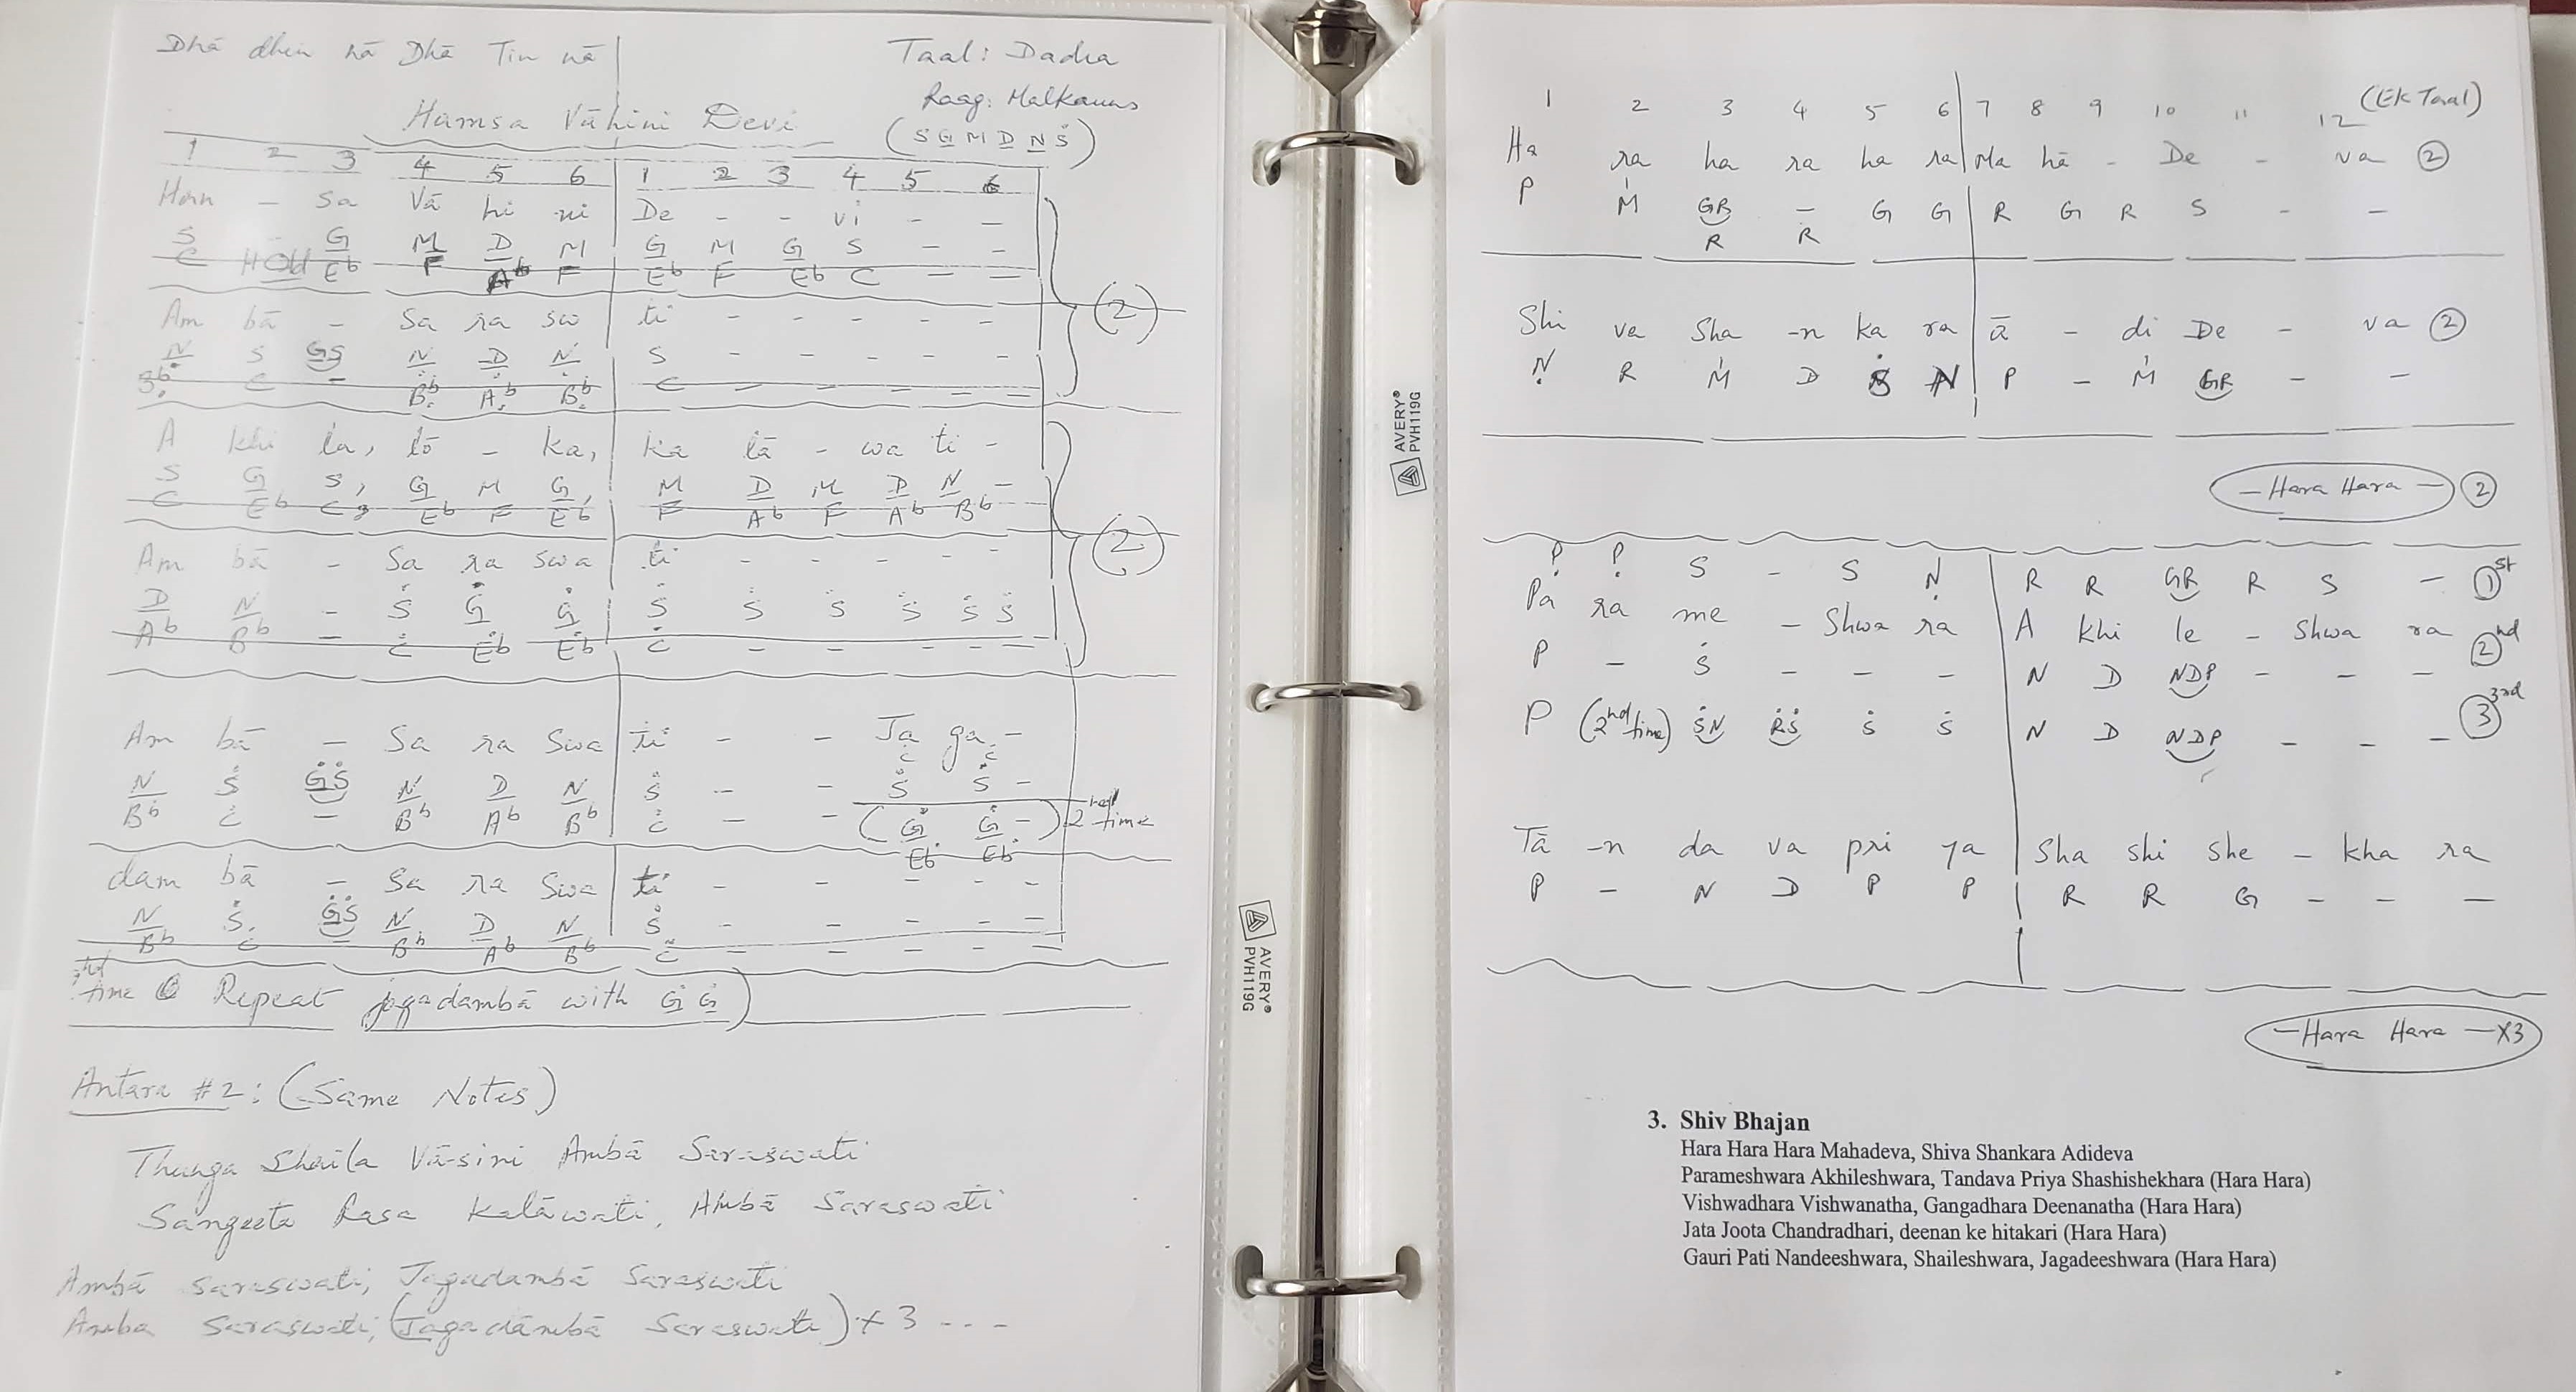 Dhā dhin nā Dhā Tin nā
Taal: Dadra
Raag: Malkauns
Hamsa Vāhini Devi
(S G̲ M D̲ N̲ Ṡ)
1 2 3 4 5 6 | 1 2 3 4 5 6
Ham - sa Vā hi ni | De - - vi - -
S - G̲ M D̲ M | G̲ M G̲ S - -
C Hold Eb F Ab F | Eb F Eb C - -
Am bā - Sa ra sw | ti - - - - -
Ṇ̲ S G̲S Ṇ̲ Ḍ̲ Ṇ̲ | S - - - - -
Bb C - Bb Ab Bb | C - - - - -
(2)
A khi la, lō - ka, | ka lā - wa ti -
S G̲ S, G̲ M G̲, | M D̲ M D̲ N̲ -
C Eb C, Eb F Eb | F Ab F Ab Bb
Am bā - Sa ra swa | ti - - - - -
D̲ N̲ - Ṡ Ġ̲ Ġ̲ | Ṡ Ṡ Ṡ Ṡ Ṡ Ṡ
Ab Bb - Ċ Ėb Ėb | Ċ - - - - -
(2)
Am bā - Sa ra Swa | ti - - Ja ga -
C C
N̲ Ṡ Ġ̲Ṡ N̲ D̲ N̲ | Ṡ - - Ṡ Ṡ -
Bb Ċ - Bb Ab Bb | Ċ - - (Ġ̲ Ġ̲ -) 2nd time
Eb Eb
dam bā - Sa ra Swa | ti - - - - -
N̲ Ṡ Ġ̲Ṡ N̲ D̲ N̲ | Ṡ - - - - -
Bb Ċ - Bb Ab Bb | Ċ - - - - -
time Repeat jagadambā with Ġ̲ Ġ̲)
Antara #2: (Same Notes)
Thunga Shaila Vā-sini Ambā Saraswati
Sangeeta Rasa Kalāwati, Ambā Saraswati
Ambā Saraswati, Jagadambā Saraswati
Amba Saraswati, (Jagadāmbā Saraswati) x 3 - - -
1 2 3 4 5 6 | 7 8 9 10 11 12 (Ek Taal)
Ha ra ha ra ha ra | Ma hā - De - va ②
P M̍ GR - G G | R G R S - -
R R
Shi va Sha -n ka ra | ā - di De - va ②
Ṇ R M̍ D Ṡ N | P - M̍ GR - -
- Hara Hara - ②
Ṗ Ṗ S - S Ṇ | R R GR R S - 1st
Pa ra me - Shwa ra | A khi le - Shwa ra
P - Ṡ - - - | N D NDP - - - 2nd
P (2nd time) ṠN ṘṠ Ṡ Ṡ | N D NDP - - - 3rd
Tā -n da va pri ya | Sha shi she - kha ra
P - N D P P | R R G - - -
- Hara Hara - X3
3. Shiv Bhajan
Hara Hara Hara Mahadeva, Shiva Shankara Adideva
Parameshwara Akhileshwara, Tandava Priya Shashishekhara (Hara Hara)
Vishwadhara Vishwanatha, Gangadhara Deenanatha (Hara Hara)
Jata Joota Chandradhari, deenan ke hitakari (Hara Hara)
Gauri Pati Nandeeshwara, Shaileshwara, Jagadeeshwara (Hara Hara)
AVERY® PVH119G
AVERY® PVH119G